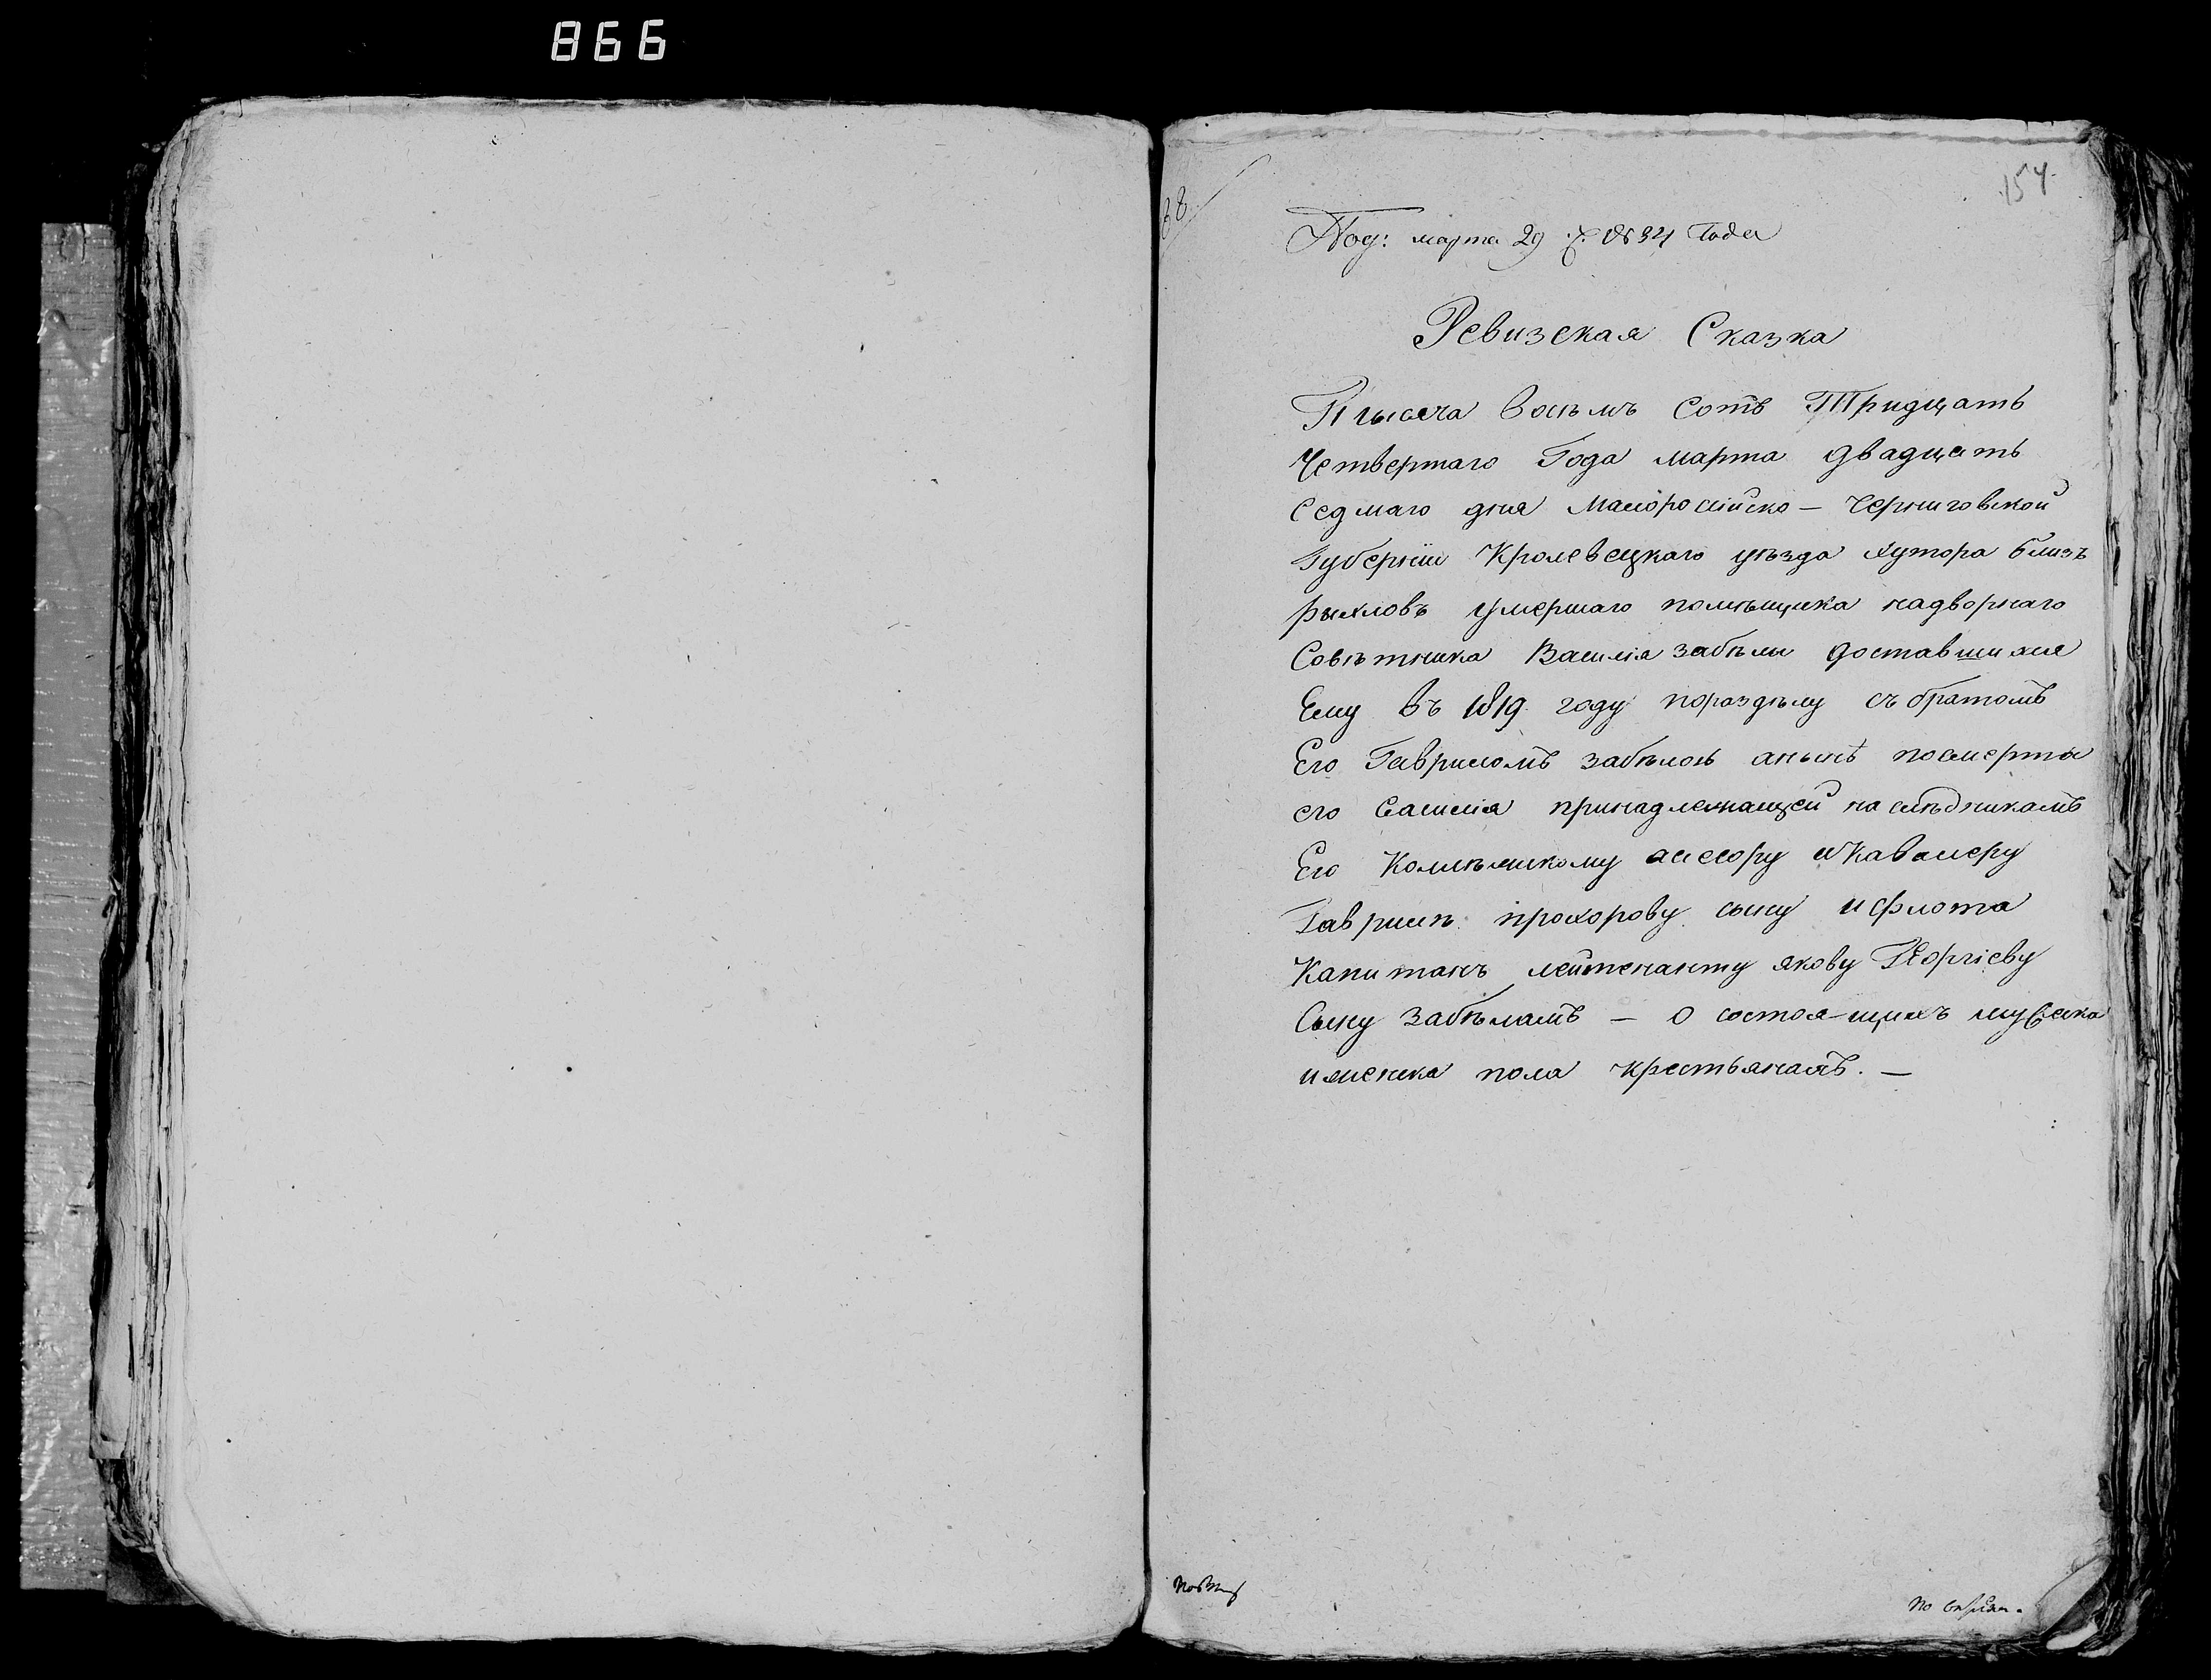 866
154
38
Под: марта 29 д. 1834 Года
Ревизская Сказка
Тысяча восьмъ Сотъ Тридцать
Четвертаго Года марта двадцать
Седмаго дня Малоросійско — Черниговской
Губерніи Кролевецкаго уѣзда хутора близъ
рыхловъ умершаго помѣщика надворнаго
Совѣтника Василія забѣли доставшихся
Ему въ 1819 году пораздѣлу съ братомъ
Его Гавриломъ забѣлою анынѣ посмерты
его Василія принадлежащей наслѣдникамъ
Его Коллѣжскому ассесору иКавалеру
Гаврилѣ прохорову сыну ифлота
Капитанъ лейтенанту якову Георгіеву
Сыну Забѣламъ — О состоящихъ мужеска
иженска пола крестьянахъ. —